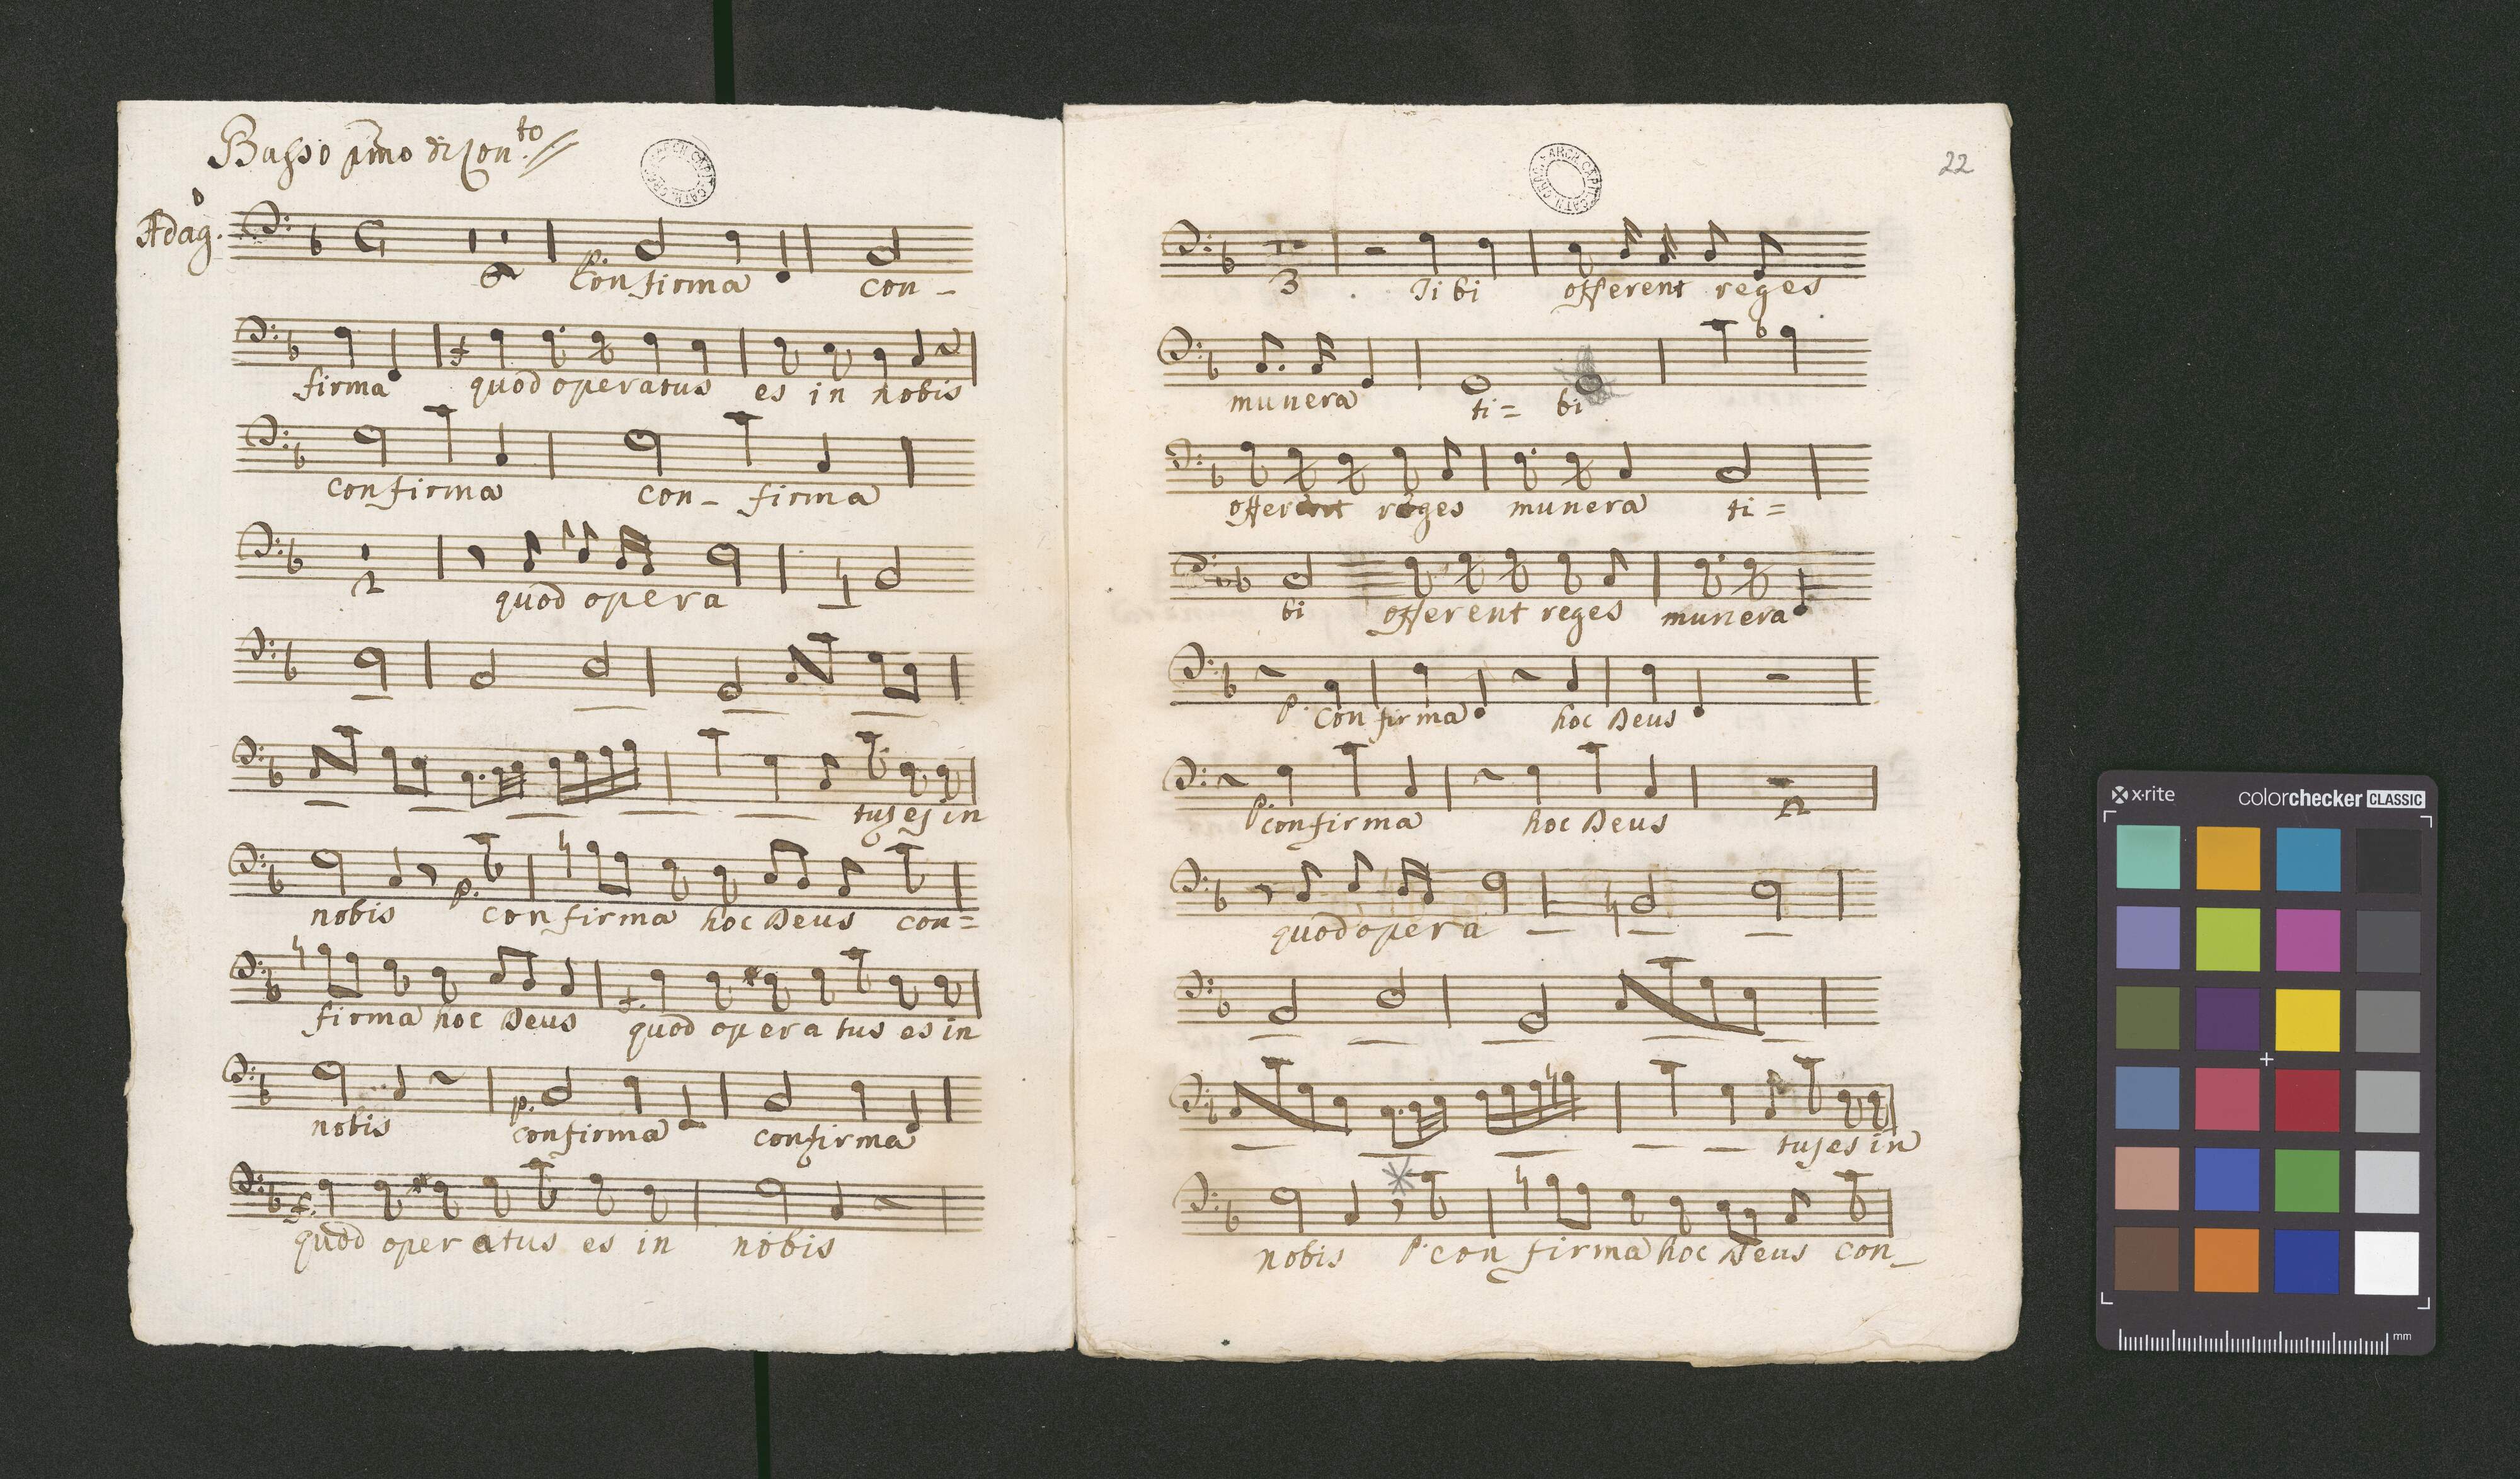 Basso pmo di Con.to
Adag.o
P. Confirma con-
firma f quod operatus es in nobis
confirma con- firma
2
quod opera
tus es in
nobis p. confirma hoc Deus con=
firma hoc Deus f. quod operatus es in
nobis p. confirma confirma
f. quod operatus es in nobis
22
3 Tibi offerent reges
munera ti= bi
offerent reges munera ti=
bi offerent reges munera
P. Confirma hoc Deus
P. confirma hoc Deus
2
quod opera
tus es in
nobis P. con firma hoc Deus con-
x-rite colorchecker CLASSIC
mm